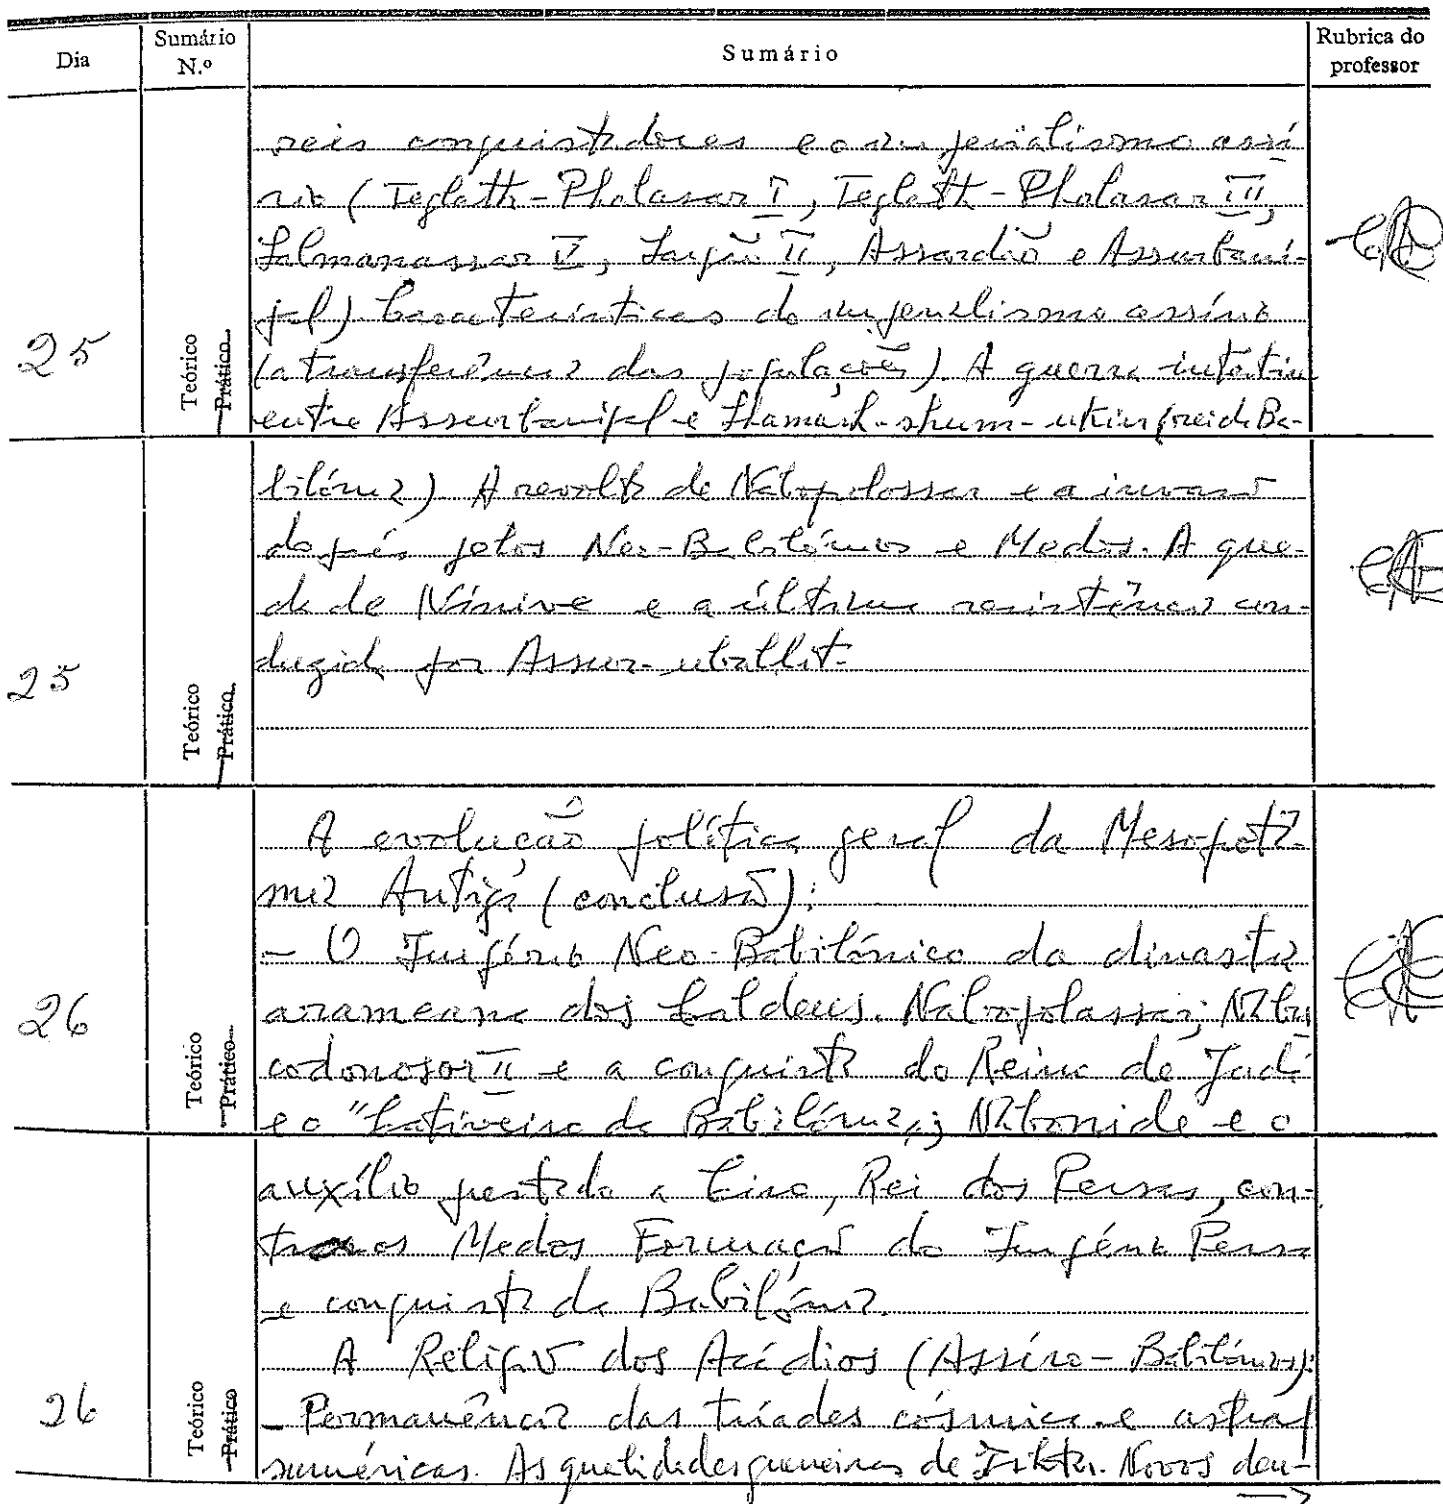 Dia
Sumário
N.º
Sumário
Rubrica do
professor
reis conquistadores e o imperialismo assí
rio (Teglath-Phalasar I, Teglath-Phalasar III,
Salmanassar V, Sargão II, Assardão e Assurbani-
pal). Características do imperialismo assírio
(a transferência das populações). A guerra intestina
entre Assurbanipal e Shamash-shum-ukin (rei de Ba-
25
Teórico
Prático
bilónia). A revolta de Nabopolassar e a invasão
do país pelos Neo-Babilónios e Medos. A que-
da de Nínive e a última resistência con-
duzida por Assur-uballit.
25
Teórico
Prático
A evolução política geral da Mesopotâ-
mia Antiga (conclusão):
- O Império Neo-Babilónico da dinastia
arameana dos Caldeus. Nabopolassar; Nabu
codonosor II e a conquista do Reino de Judá
e o "Cativeiro da Babilónia"; Nabonide e o
26
Teórico
Prático
auxílio prestado a Ciro, Rei dos Persas, con-
tra os Medos. Formação do Império Persa
e conquista da Babilónia.
A Religião dos Acádios (Assiro-Babilónios):
- Permanência das tríades cósmica e astral
suméricas. As qualidades guerreiras de Ishtar. Novos deu-
26
Teórico
Prático